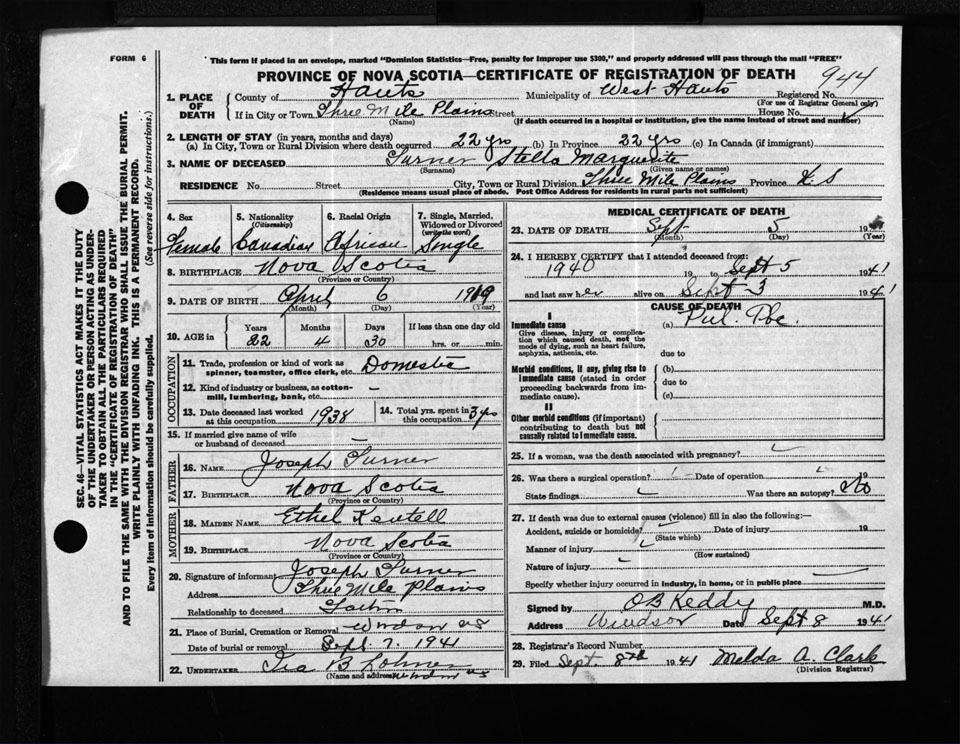 FORM 6
This form if placed in an envelope, marked "Dominion Statistics—Free, penalty for improper use $300," and properly addressed will pass through the mail "FREE"
PROVINCE OF NOVA SCOTIA—CERTIFICATE OF REGISTRATION OF DEATH
944
1. PLACE OF DEATH County of Hants Municipality of West Hants Registered No.
(For use of Registrar General only)
If in City or Town Three Mile Plains Street House No.
(Name) (If death occurred in a hospital or institution, give the name instead of street and number)
2. LENGTH OF STAY (in years, months and days)
(a) In City, Town or Rural Division where death occurred 22 yrs (b) In Province 22 yrs (c) In Canada (if immigrant)
3. NAME OF DECEASED Turner Stella Marguerite
(Surname) (Given name or names)
RESIDENCE No. Street City, Town or Rural Division Three Mile Plains Province N S
(Residence means usual place of abode. Post Office Address for residents in rural parts not sufficient)
4. Sex 5. Nationality (Citizenship) 6. Racial Origin 7. Single, Married, Widowed or Divorced (write the word)
Female Canadian African Single
8. BIRTHPLACE Nova Scotia
(Province or Country)
9. DATE OF BIRTH April 6 1919
(Month) (Day) (Year)
10. AGE in Years Months Days If less than one day old
22 4 30 hrs. or min.
OCCUPATION
11. Trade, profession or kind of work as spinner, teamster, office clerk, etc. Domestic
12. Kind of industry or business, as cotton-mill, lumbering, bank, etc. —
13. Date deceased last worked at this occupation 1938 14. Total yrs. spent in this occupation 3 yrs
15. If married give name of wife or husband of deceased —
FATHER
16. NAME Joseph Turner
17. BIRTHPLACE Nova Scotia
(Province or Country)
MOTHER
18. MAIDEN NAME Ethel
19. BIRTHPLACE Nova Scotia
(Province or Country)
20. Signature of informant Joseph Turner
Address Three Mile Plains
Relationship to deceased
21. Place of Burial, Cremation or Removal Windsor NS
Date of burial or removal Sept. 7. 1941
22. UNDERTAKER Ira B
(Name and address) Windsor NS
MEDICAL CERTIFICATE OF DEATH
23. DATE OF DEATH Sept 5 19
(Month) (Day) (Year)
24. I HEREBY CERTIFY that I attended deceased from:
1940 19 to Sept 5 1941
and last saw her alive on Sept 3 1941
CAUSE OF DEATH
I
Immediate cause (a) Pul. Tbc.
Give disease, injury or complication which caused death, not the mode of dying, such as heart failure, asphyxia, asthenia, etc.
due to
Morbid conditions, if any, giving rise to immediate cause (stated in order proceeding backwards from immediate cause)
(b)
due to
(c)
II
Other morbid conditions (if important) contributing to death but not causally related to immediate cause.
25. If a woman, was the death associated with pregnancy?
26. Was there a surgical operation? Date of operation 19
State findings Was there an autopsy? No
27. If death was due to external causes (violence) fill in also the following:—
Accident, suicide or homicide? Date of injury 19
(State which)
Manner of injury
(How sustained)
Nature of injury
Specify whether injury occurred in industry, in home, or in public place
Signed by OB Keddy M.D.
Address Windsor Date Sept 8 1941
28. Registrar's Record Number
29. Filed Sept. 8th 1941 Melda A. Clark
(Division Registrar)
SEC. 46—VITAL STATISTICS ACT MAKES IT THE DUTY
OF THE UNDERTAKER OR PERSON ACTING AS UNDER-
TAKER TO OBTAIN ALL THE PARTICULARS REQUIRED
IN THE "CERTIFICATE OF REGISTRATION OF DEATH"
AND TO FILE THE SAME WITH THE DIVISION REGISTRAR WHO SHALL ISSUE THE BURIAL PERMIT.
WRITE PLAINLY WITH UNFADING INK. THIS IS A PERMANENT RECORD.
Every item of information should be carefully supplied. (See reverse side for instructions.)